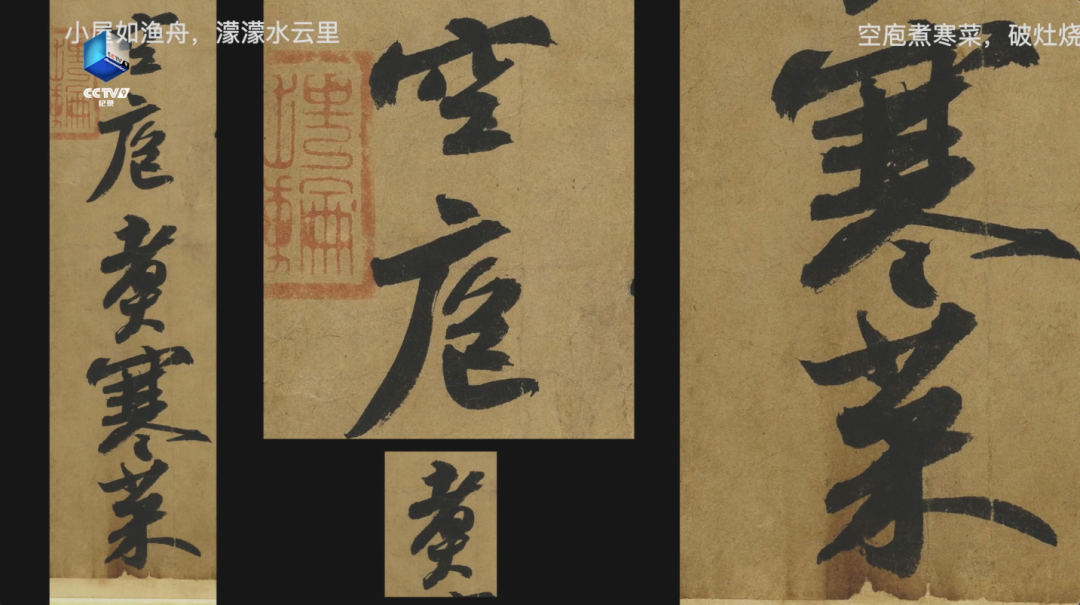 小屋如渔舟，濛濛水云里
空庖煮寒菜，破灶烧
CCTV9
纪录
空庖煮寒菜
空庖
煮
寒菜